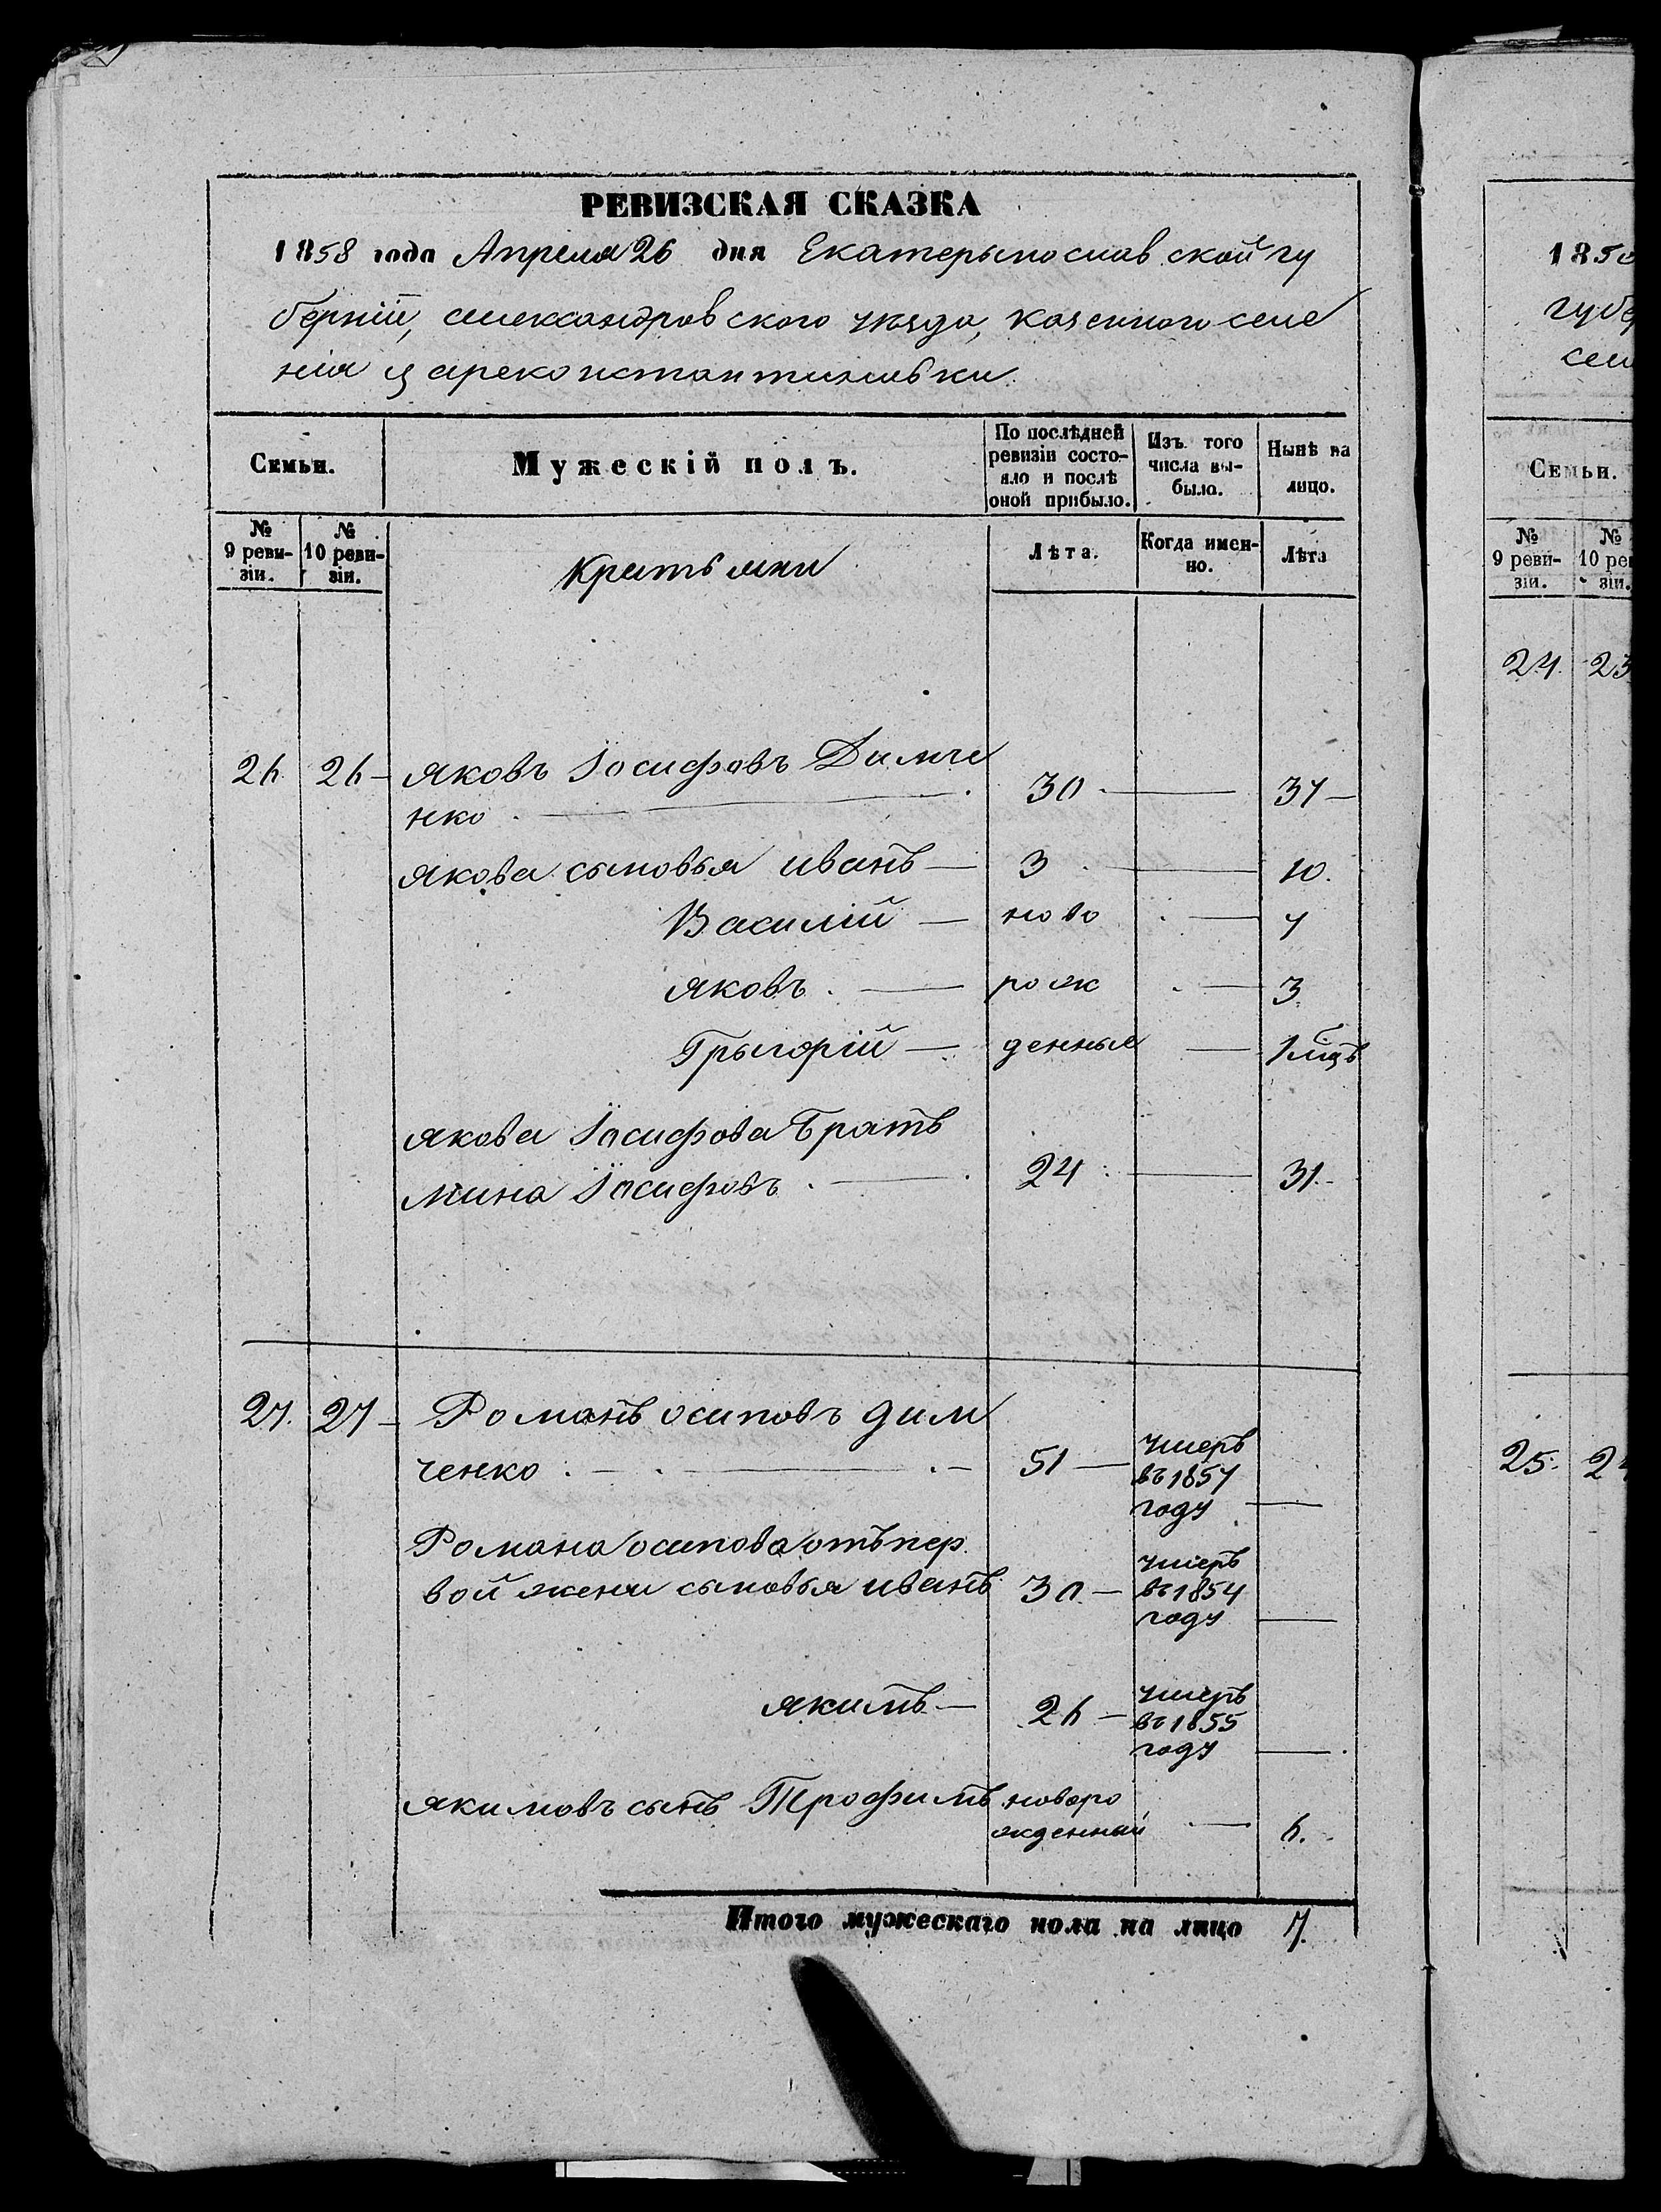 РЕВИЗСКАЯ СКАЗКА
1858 года Апреля 26 дня Екатерынославской гу
берніи, александровского уѣзда, казенного селе
нія цареконстантиновки.
Семьи.
Мужескій полъ.
По послѣдней
ревизіи состо-
яло и послѣ
оной прибыло.
Изъ того
числа вы-
было.
Нынѣ на
лицо.
№
9 реви-
зіи.
№
10 реви-
зіи.
Лѣта.
Когда имен-
но.
Лѣта
26 26 Яковъ Іосифовъ Димче
нко 30 37
Якова сыновья иванъ 3 10.
Василій ново 7
Яковъ рож 3
Грыгорій денные 1 мцъ
Якова Іосифова братъ
мина Іосифовъ 24 31
27. 27 Романъ осиповъ дим
ченко 51 умеръ
въ 1857
году
Романа осипова отъ пер
вой жени сыновья иванъ 30 умеръ
въ 1854
году
якимъ 26 умеръ
въ 1855
году
якимовъ сынъ Трофимъ новоро
жденный 6.
Итого мужескаго пола на лицо 7.
185
губе
сел
Семьи.
№
9 реви-
зіи.
№
10 ре
зіи.
24. 23
25. 2